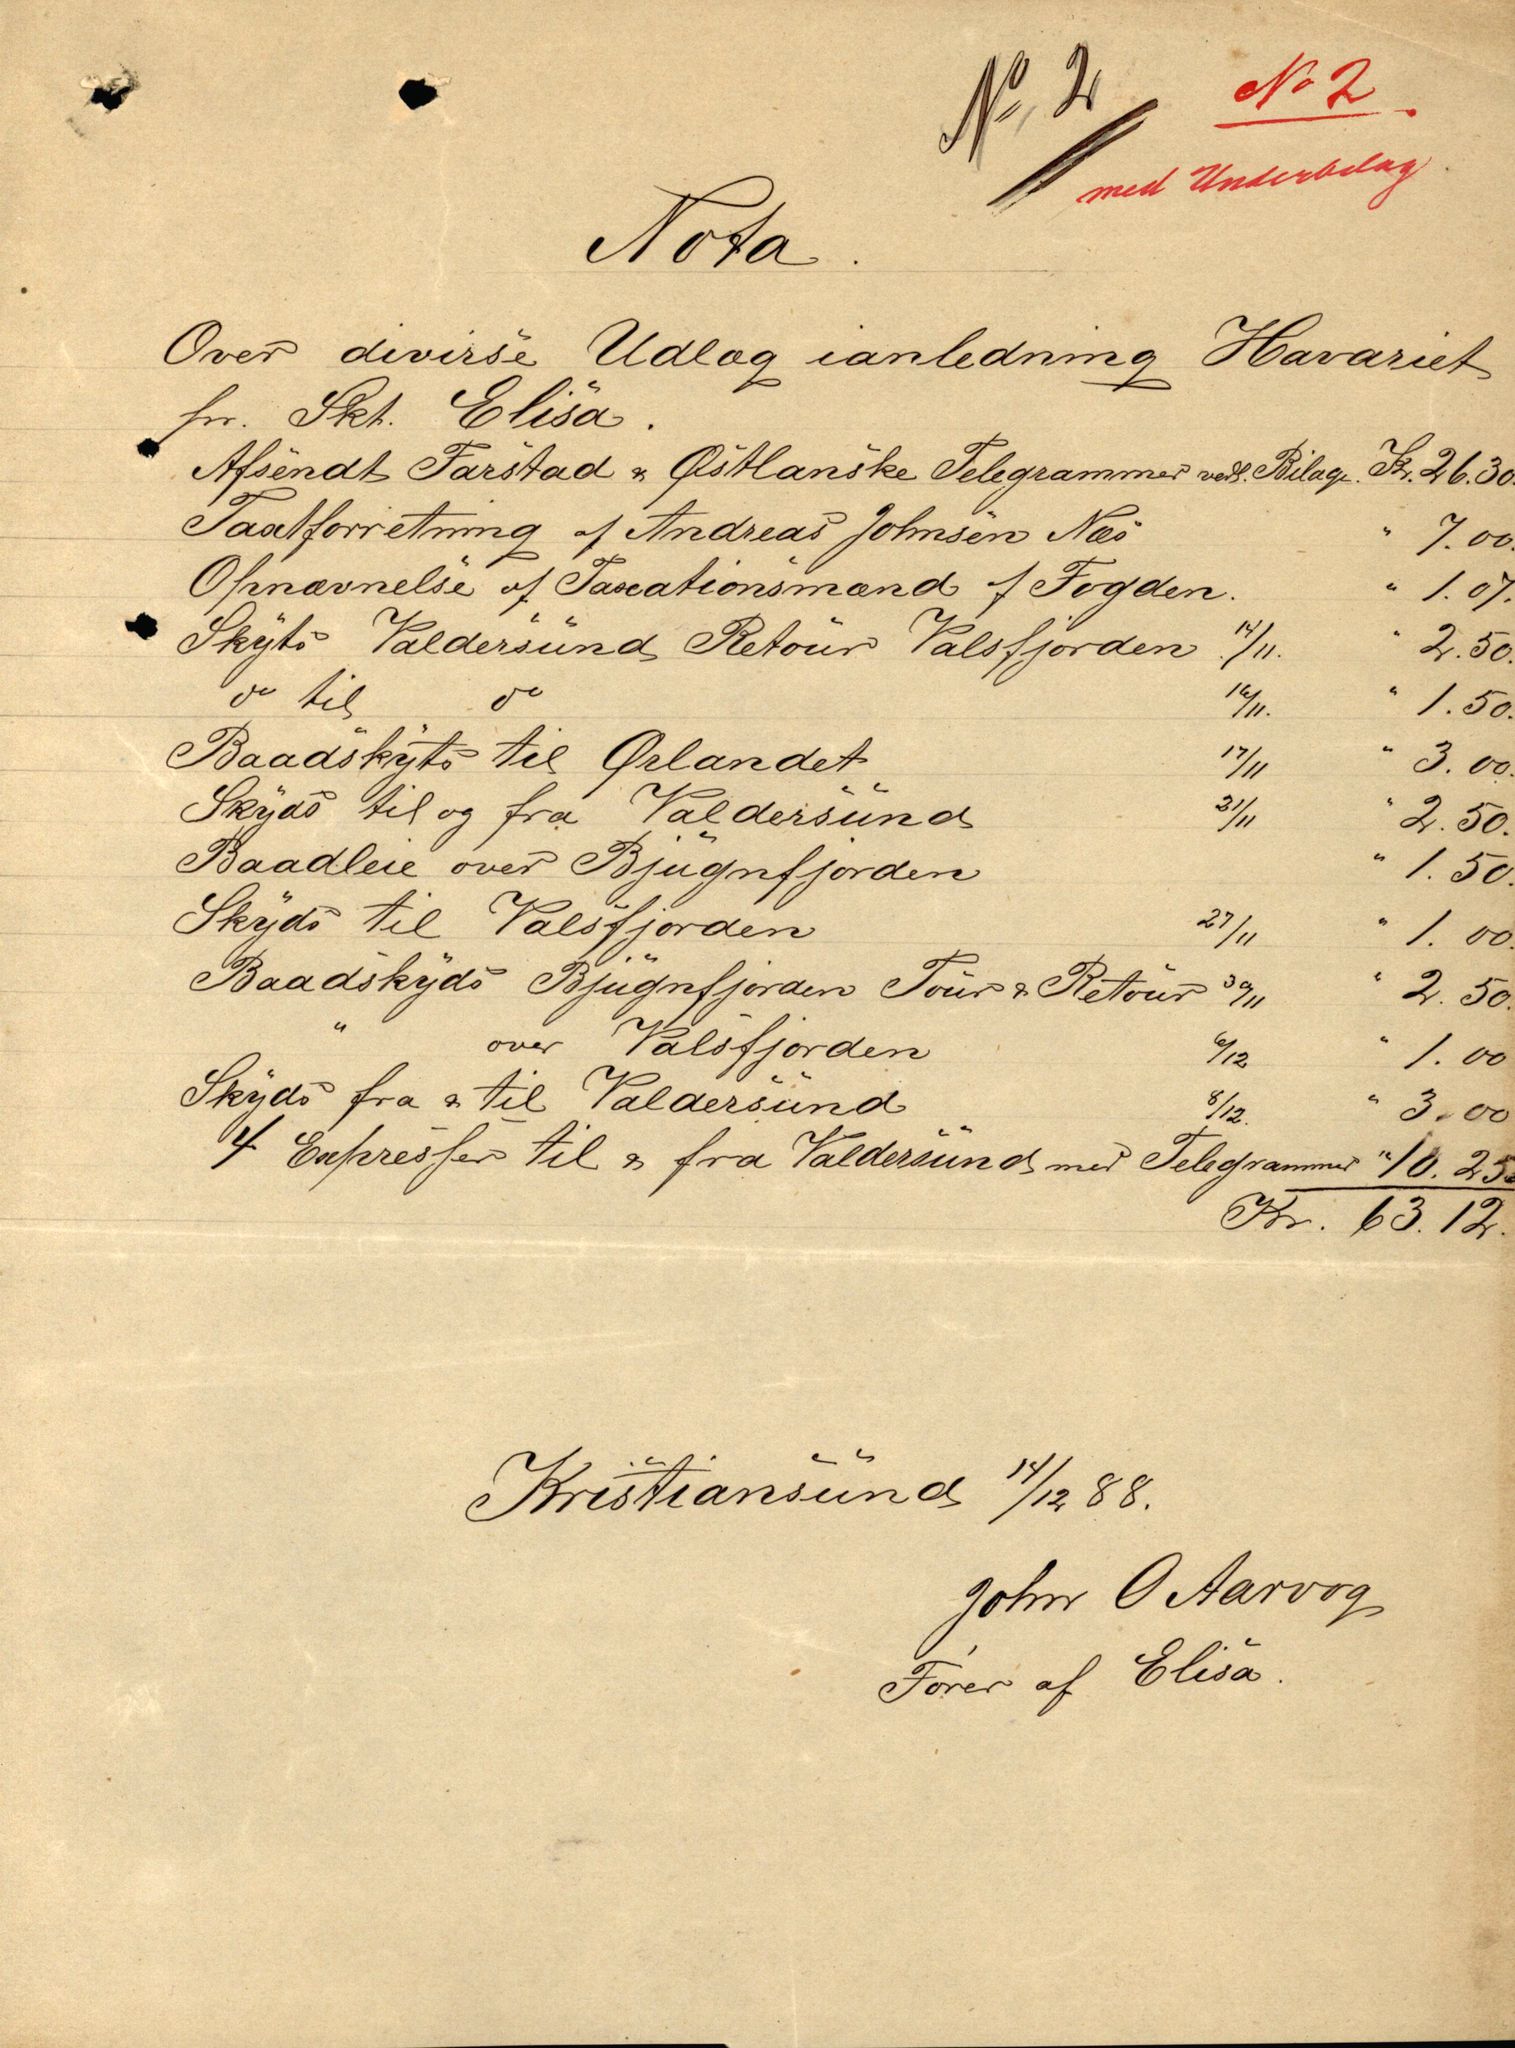 No, 2
No 2
med Underbilag
Nota.
Over divirse Udlæg ianledning Havariet
pr. Skt. Elisa.
Afsendt Farstad & Østlanske Telegrammer vedl. Bilage. Kr. 26.30.
Taxtforretning af Andreas Johnsen Næs " 7.00.
Opnævnelse af Taxationsmænd af Fogden. " 1.07.
Skyts Valdersund Retour Valsfjorden 14/11. " 2.50.
do til do 16/11. " 1.50.
Baadskyts til Ørlandet 17/11 " 3.00.
Skyds til og fra Valdersund 21/11 " 2.50.
Baadleie over Bjugnfjorden " 1.50.
Skyds til Valsfjorden 27/11 " 1.00.
Baadskyds Bjugnfjorden Tour & Retour 30/11 " 2.50.
" over Valsfjorden 6/12 " 1.00
Skyds fra & til Valdersund 8/12. " 3.00
4 Expresser til & fra Valdersund med Telegrammer " 10.25
Kr. 63.12.
Kristiansund 14/12 88.
John O Aarvog
Fører af Elisa.